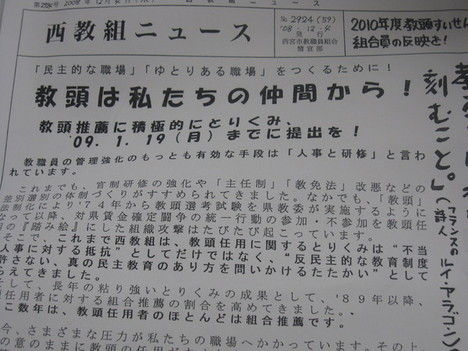 2008年12月
西教組ニュース
No.2924(59)
'08.12.9
発行
西宮市教職員組合
情宣部
2010年度教頭すいせん
組合員の反映を!
「民主的な職場」「ゆとりある職場」をつくるために!
教頭は私たちの仲間から!
教頭推薦に積極的にとりくみ、
'09.1.19(月)までに提出を!
教職員の管理強化のもっとも有効な手段は「人事と研修」と言わ
れています。
これまでも、官制研修の強化や「主任制」「教免法」改悪などの
差別選別の体制づくりがすすめられてきました。なかでも、「教頭
法制化により'74年から教頭選考試験を県教委が実施するように
なって以降、対県賃金確定闘争の統一行動の参加・不参加を教頭任
用の『踏み絵』にした組織攻撃はたびたび起こっています。
そこで、これまで西教組は、教頭任用に関するとりくみは“不当
人事に対する抵抗”としてだけではなく、“反民主的な教育制度
許さない、真の民主教育のあり方を問いかけるたたかい”として
らえてきました。
そして、長年の粘り強いとりくみの成果として、'89年以降、
任用者に対する組合推薦の割合を高めてきました。
こ数年は、教頭任用者のほとんどは組合推薦です。
今、さまざまな圧力が私たちの職場へかかっています。その
の意のままに教頭の任用が
刻むこと。
フランスの
詩人
ルイ・アラゴン